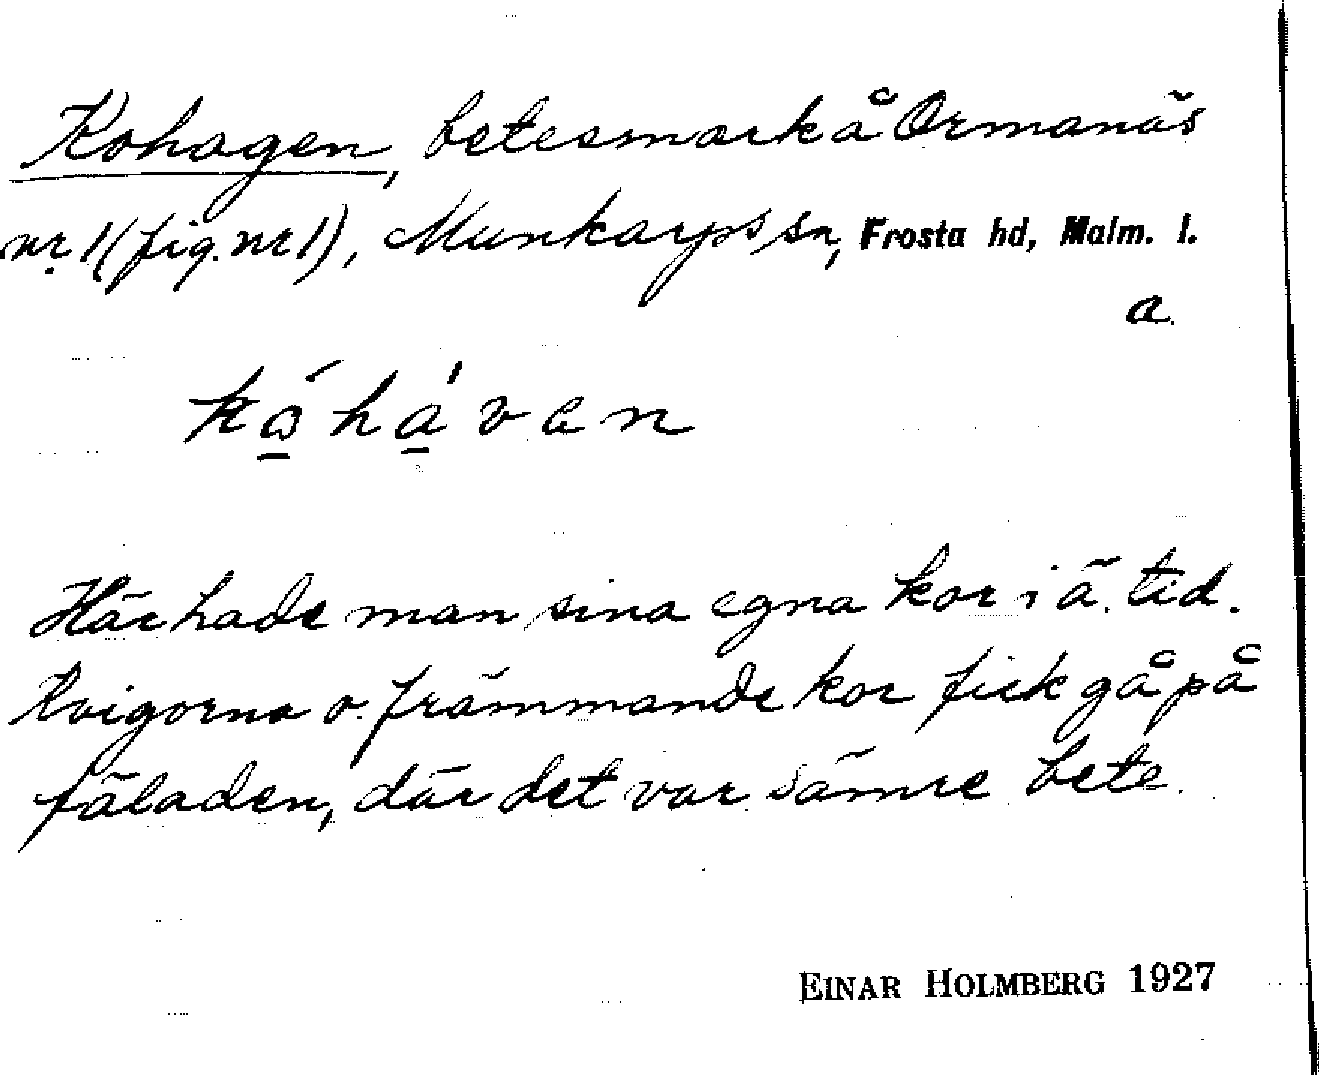 Kohagen, betesmark å Ormanäs
nr 1 (fig. nr 1), Munkarps sn, Frosta hd, Malm. l.
a.
kǫ́hą́ven
Här hade man sina egna kor i ä. tid.
Kvigorna o. främmande kor fick gå på
fäladen, där det var sämre bete.
EINAR HOLMBERG 1927